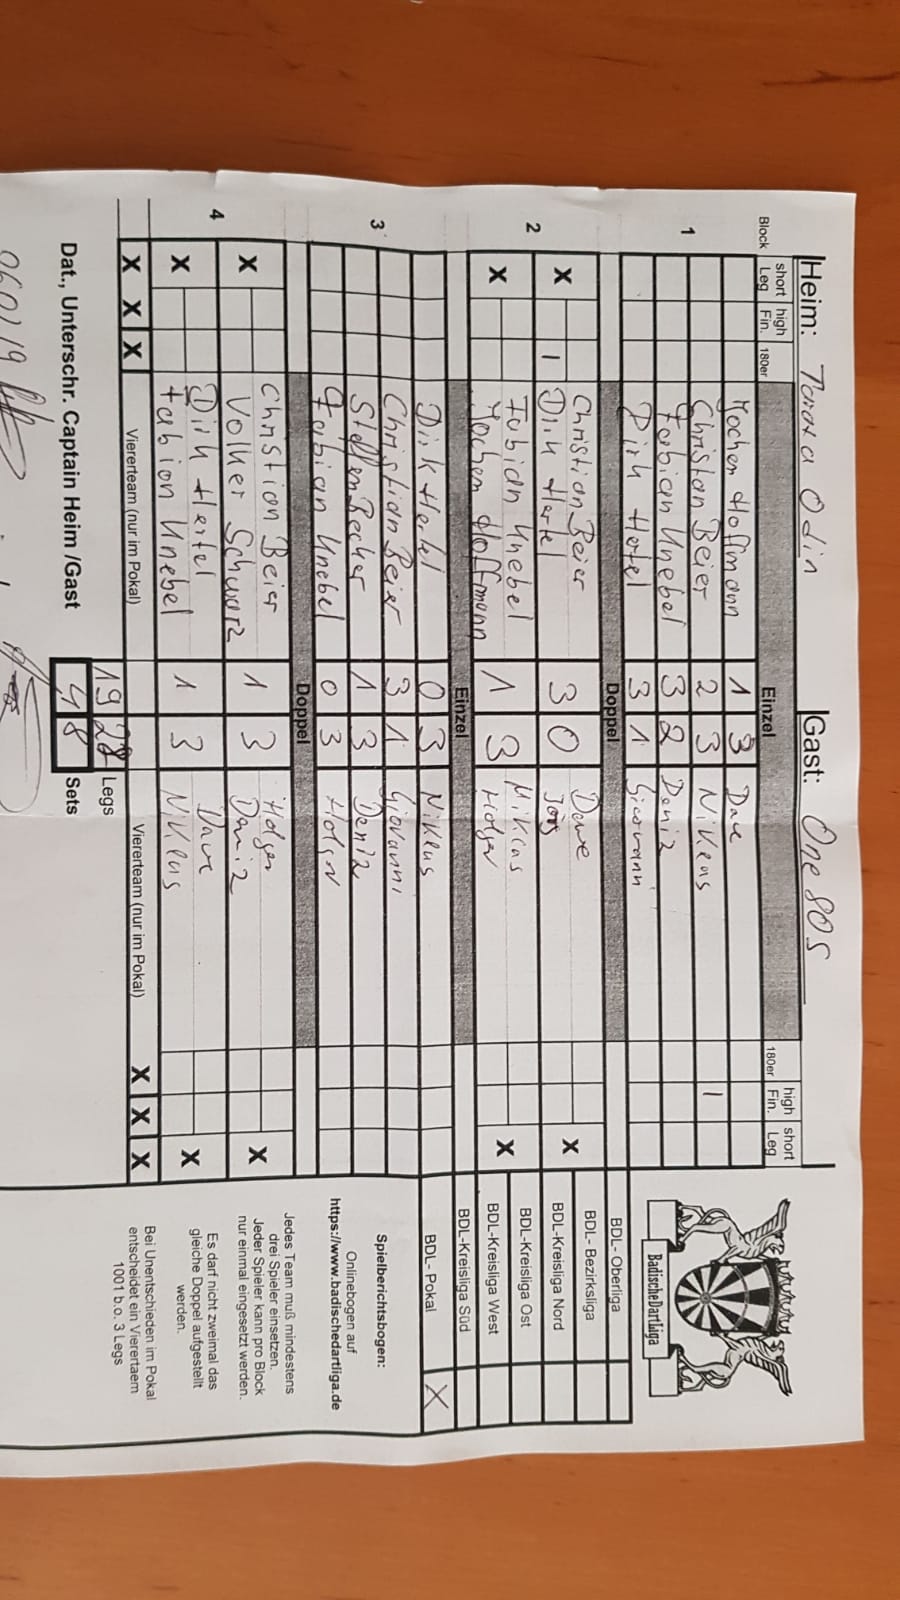 Heim: Tara Odin Gast: One 80s
Block short Leg high Fin. 180er Einzel 180er high Fin. short Leg
1
Jochen Hoffmann 1 3 Dave
Christian Beier 2 3 Niklas 1
Fabian Knebel 3 2 Deniz
Dirk Hertel 3 1 Giovanni
Doppel
2
Christian Beier Dave
X 1 Dirk Hertel 3 0 Jörg X
Fabian Knebel Niklas
X Jochen Hoffmann 1 3 Holger X
Einzel
3
Dirk Hertel 0 3 Niklas
Christian Beier 3 1 Giovanni
Steffen Becher 1 3 Deniz
Fabian Knebel 0 3 Holger
Doppel
4
Christian Beier Holger
X Volker Schwarz 1 3 Deniz X
Dirk Hertel Dave
X Fabian Knebel 1 3 Niklas X
X X X Viererteam (nur im Pokal) Viererteam (nur im Pokal) X X X
19 22 Legs
Dat., Unterschr. Captain Heim /Gast 4 8 Sets
BadischeDartLiga
BDL- Oberliga
BDL- Bezirksliga
BDL-Kreisliga Nord
BDL-Kreisliga Ost
BDL-Kreisliga West
BDL-Kreisliga Süd
BDL- Pokal X
Spielberichtsbogen:
Onlinebogen auf
https://www.badischedartliga.de
Jedes Team muß mindestens
drei Spieler einsetzen.
Jeder Spieler kann pro Block
nur einmal eingesetzt werden.
Es darf nicht zweimal das
gleiche Doppel aufgestellt
werden.
Bei Unentschieden im Pokal
entscheidet ein Vierertaem
1001 b.o. 3 Legs